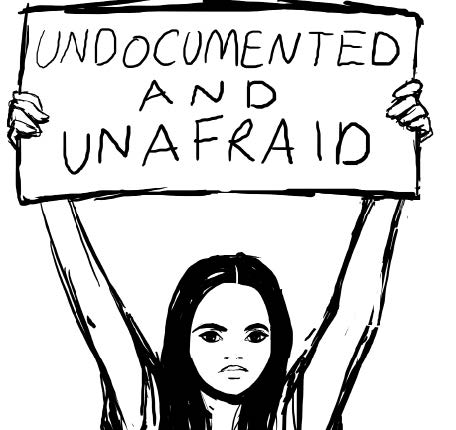 UNDOCUMENTED
AND
UNAFRAID